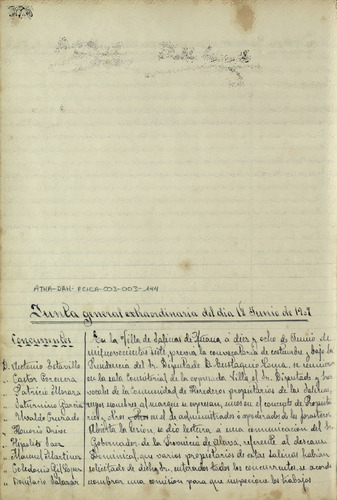 ATHA-DAH-FCICA-003-003-144
Junta general extraordinaria del dia 18 Junio de 1907
Concurrentes
D. Antonio Estavillo
" Castor
" Patricio
" Saturnino Garcia
" Honorio
" Hipolito Saez
" Manuel Martinez
" Celedonio
" Salazar
En la Villa de Salinas de Añana á diez y ocho de Junio de
mil novecientos siete, previa la convocatoria de costumbre y bajo la
Presidencia del Sr. Diputado D. Eustaquio se reunieron
en la sala Consistorial de la expresada Villa el Sr. Diputado y
vocales de la Comunidad de Herederos propietarios de las Salinas,
cuyos nombres al margen se expresan, unos en el concepto de Propieta-
rios, otros en el de administradores ó apoderados de los forasteros
Abierta la sesion se dio lectura á una comunicacion del Sr.
Gobernador de la Provincia de Alava, referente al descanso
Dominical, que varios propietarios de estas Salinas habian
solicitado de dicho Sr. enterados todos los concurrentes, se acordó
nombrar una comision para que inspeccione los trabajos